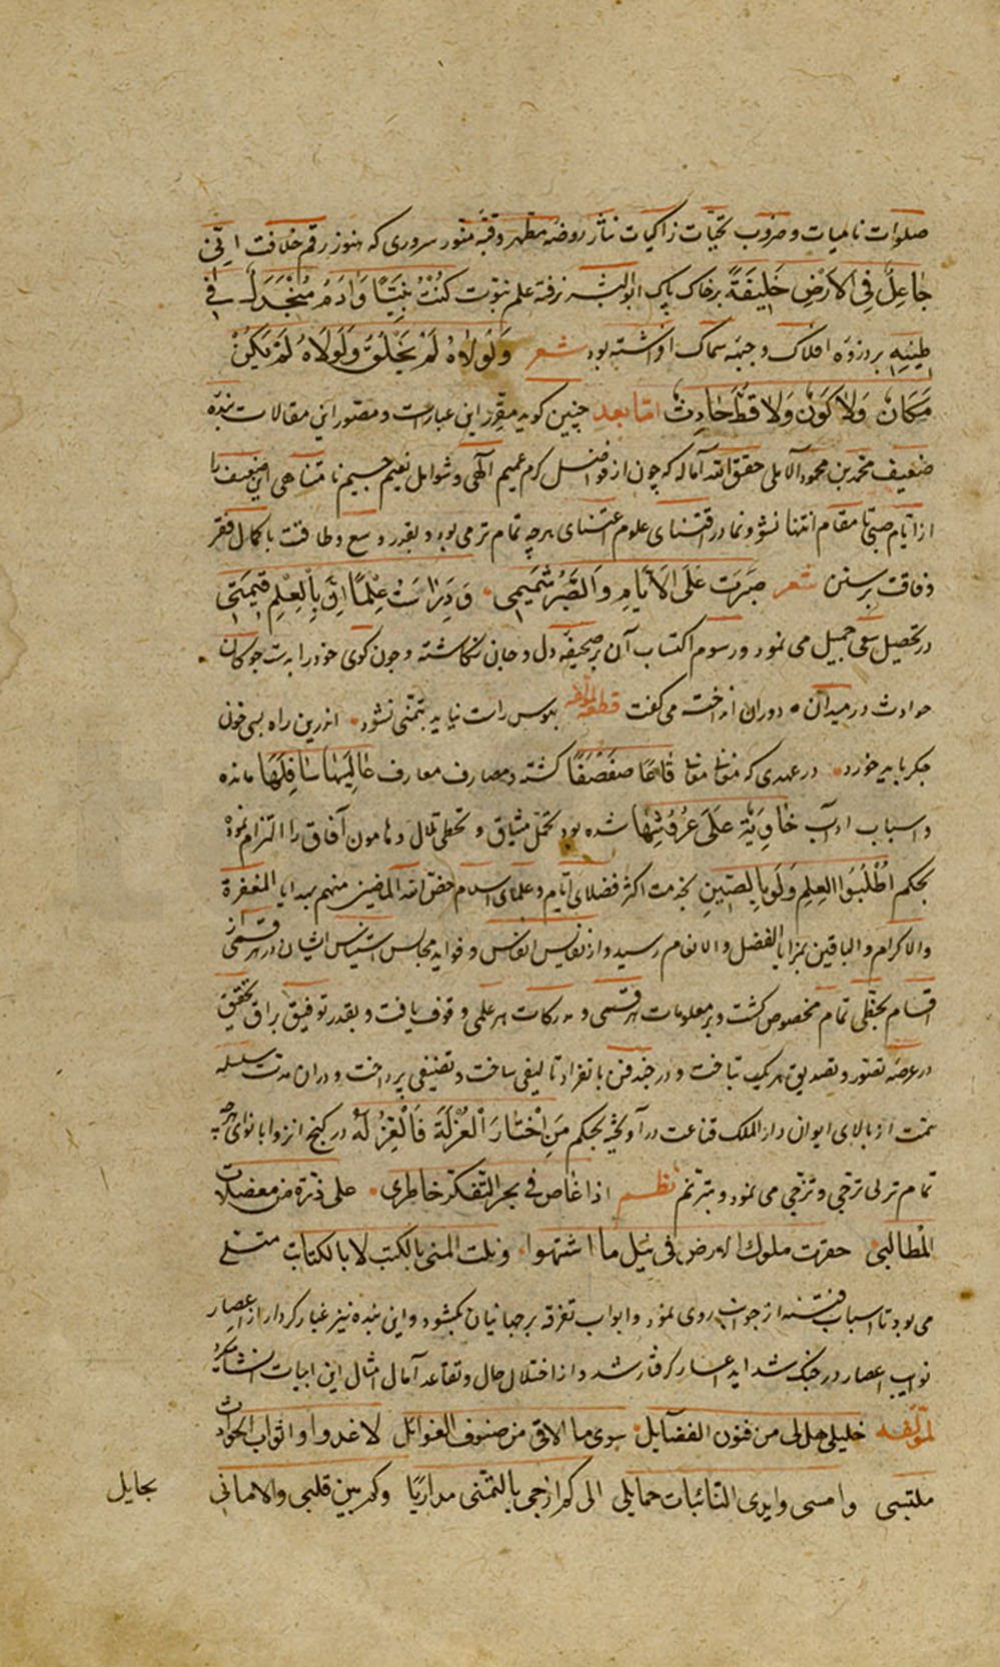 صلوات نامیات و ضروب تحیّات زاکیات نثار روضه مطهر و قبّه منور سروری که هنوز رقم خلافت انّی
جَاعِلٌ فِی الاَرْضِ خَلِیفَةً بر خاک پاک ابوالبشر نرفته علم نبوّت کُنْتُ نَبِیًّا وَآدَمُ مُنْجَدِلٌ فِی
طِینِهِ بر ذروه افلاک و جبهه سماک افراشته بود شعر وَلَوْلَاهُ لَمْ یَخْلُقْ وَلَوْلَاهُ لَمْ یَکُنْ
مَکَانٌ وَلَا کَوْنٌ وَلَا قَطُّ حَادِثٌ امّا بعد چنین کوید مقرّر این عبارت و مصوّر این مقالات بنده
ضعیف محمّد بن محمود الآملی حقق الله آماله که چون از فواضل کرم عمیم الٓهی و شوامل نعیم جسیم نامتناهی این ضعیف را
از ایّام صبی تا مقام انتها نشو و نما در اقتنای علوم اعتنای هرچه تمام تر می بود و بقدر وسع و طاقت با کمال فقر
و فاقت بر سنن شعر صَبَرْتُ عَلَی الاَیّامِ وَالصَّبْرُ شِیمَتِی وَدَارَسْتُ عِلْمًا اِنَّ بِالْعِلْمِ قِیمَتِی
در تحصیل سعی جمیل می نمود و رسوم اکتساب آن بر صحیفه دل و جان نکاشته و چون کوی خود را بدست چوکان
حوادث در میدان دوران انداخت می کفت قطعه لمؤلفه بهوس راست نیاید بتمنّی نشود اندرین راه بسی خون
جکر باید خورد در عهدی که مغانی معانی قَاعًا صَفْصَفًا کشته و مصارف معارف عَالِیَهَا سَافِلَهَا مانده
و اسباب آداب خَاوِیَةٌ عَلَی عُرُوشِهَا شده بود تحمّل مشاق و تخطّی تلال و هامون آفاق را التزام نموده
بحکم اُطْلُبُوا العِلْمَ وَلَوْ بِالصِّینِ بخدمت اکثر فضلای ایّام و علمای اسلام خصّ الله الماضین منهم بهدایا المغفرة
والاکرام والباقین بمزایا الفضل والانعام رسید و از نفایس انفاس و فواید مجالس استیناس ایشان در هر قسمی از
اقسام بحظّی تمام مخصوص کشت و بر معلومات هر قسمی و مدرکات هر علمی وقوف یافت و بقدر توفیق براق تحقیق
در عرصه تصوّر و تصدیق هر یک بتاخت و در چند فن بانفراد تالیفی ساخت و تصنیفی پرداخت و در آن مدت سلسله
همّت از بالای ایوان دارالملک قناعت درآویخته بحکم مَنِ اخْتَارَ الْعُزْلَةَ فَالْعِزُّ لَهُ در کنج انزوا با نوای هرچه
تمام تر لی ترجّی و تزجّی می نمود و مترنّم نظم اذا غاص فی بحر التفکر خاطری علی ذرّة من معضلات
المطالب حقرت ملوک الارض فی نیل ما اشتهوا ونلت المنی بالکتب لا بالکتائب متسلّی
می بود تا اسباب فتنه از جوانب روی نمود و ابواب تفرقه بر جهانیان بکشود و این بنده نیز غبار کردار از اعصار
نوایب اعصار در چنک شداید اعسار کرفتار شد و از اختلال حال و تقاعد آمال امثال این ابیات انشا میکرد
لمؤلفه خلیلیّ هل لی من فنون الفضایل سوی ما الاقی من صنوف الغوائل لاغدو واثواب الحوادث
ملبسی وامسی وایدی النائبات حمایلی الی کم ازجی بالتمنّی مداریًا وکم بین قلبی والامانی
بحایل